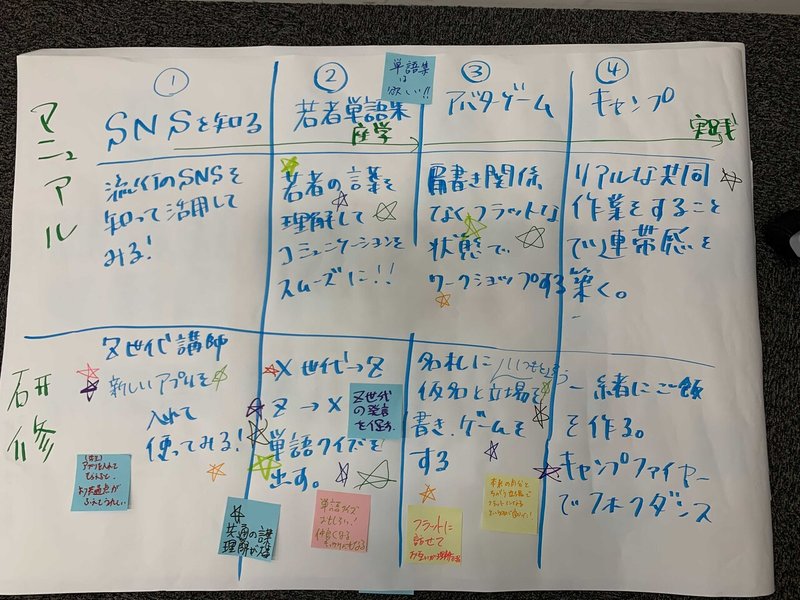 マニュアル
研修
①
SNSを知る
流行のSNSを
知って活用して
みる!
Z世代講師
新しいアプリを
入れて
使ってみる!
アプリを入れて
共通点が
ふえてうれしい
②
若者単語集
座学
単語集
は
欲しい!!
若者の言葉を
理解して
コミュニケーションを
スムーズに!!
X世代→Z
Z→X
単語クイズを
出す。
Z世代
の発言
を促す
共通の課
理解が深
単語クイズ
おもしろい!
仲良くなる
③
アバターゲーム
肩書き関係
なくフラットな
状態で
ワークショップする
名札に
いつもと違う
仮名と立場を
書き、ゲームを
する
フラートに
話せて
④
キャンプ
実践
リアルな共同
作業をすること
で連帯感を
築く。
一緒にご飯
を作る。
キャンプファイヤー
でフォークダンス